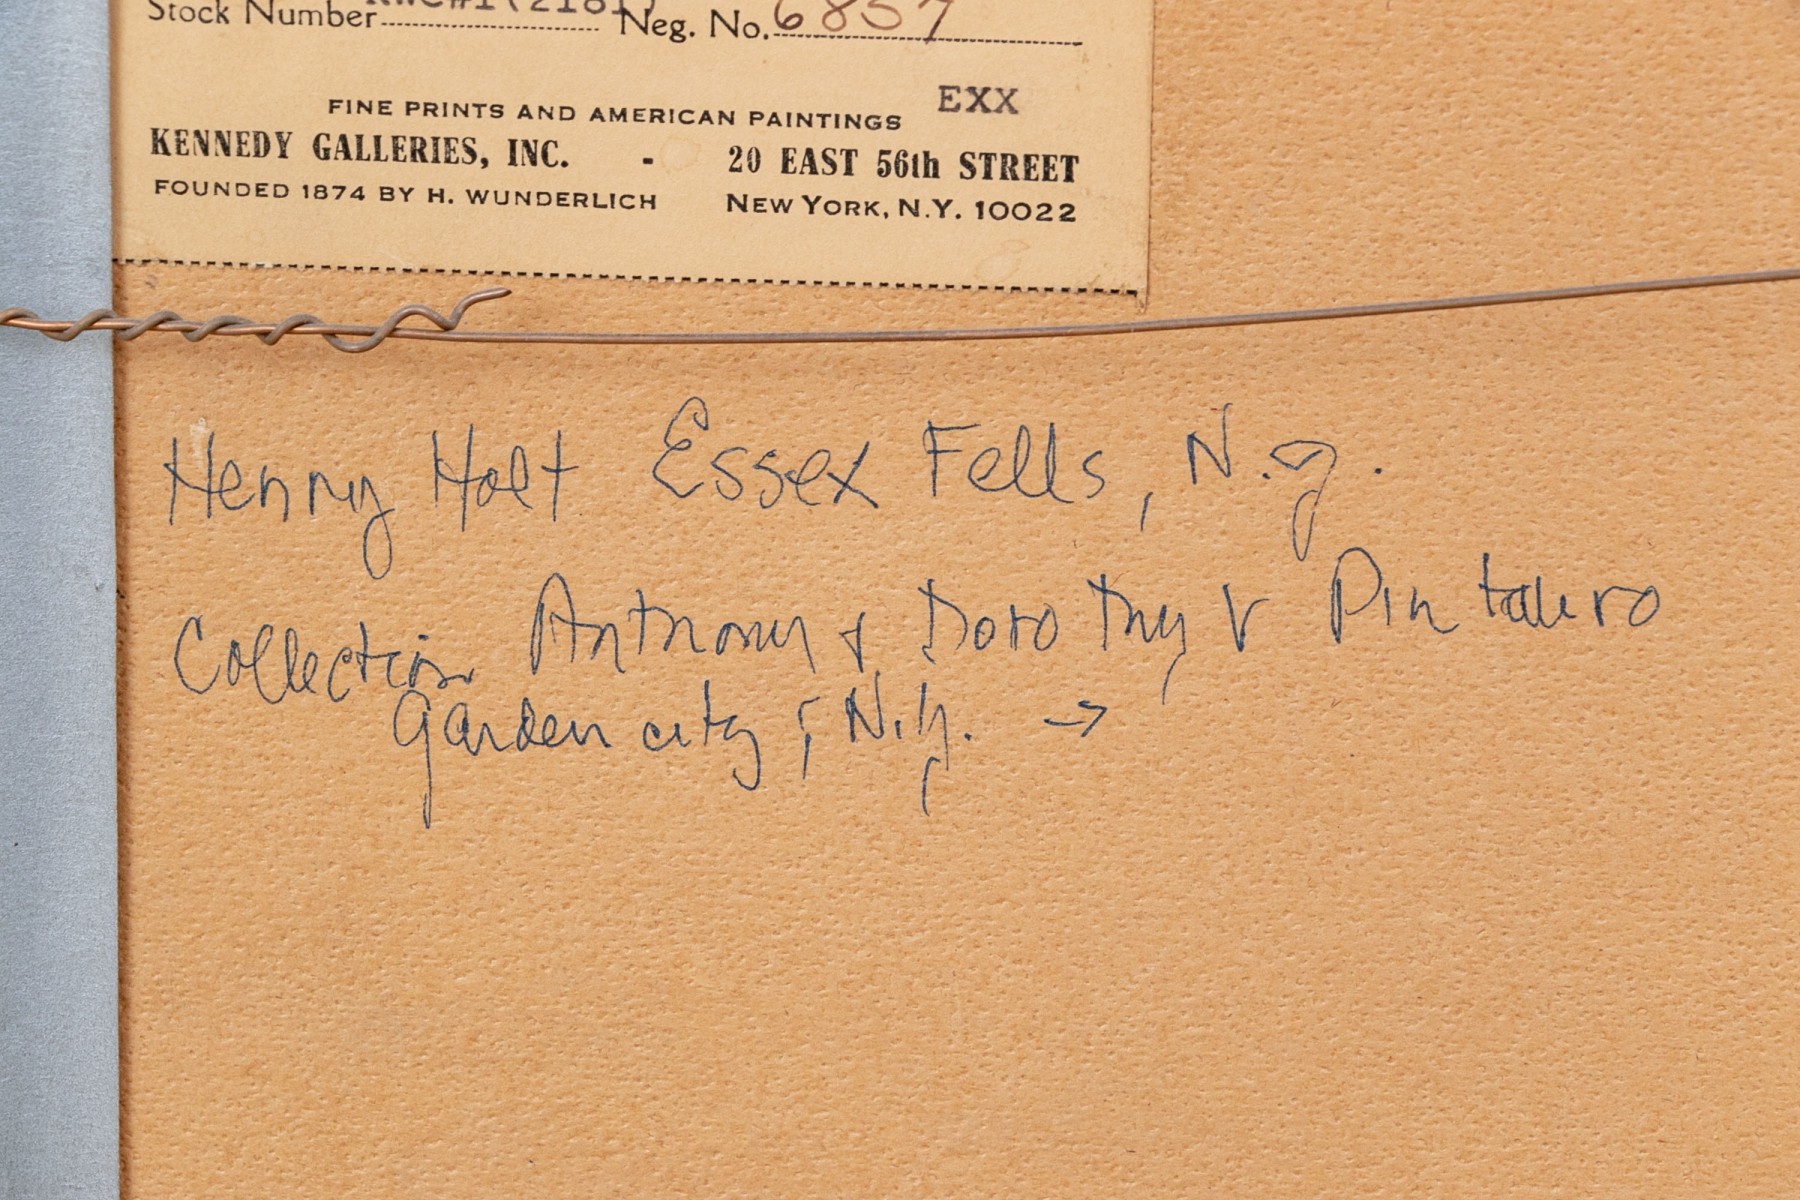 Stock Number Neg. No. 6857
EXX
FINE PRINTS AND AMERICAN PAINTINGS
KENNEDY GALLERIES, INC. - 20 EAST 56th STREET
FOUNDED 1874 BY H. WUNDERLICH NEW YORK, N.Y. 10022
Henry Holt Essex Fells, N.J.
Collection Anthony & Dorothy V Pintauro
Garden City, N.Y. →